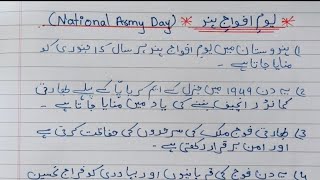 * یومِ افواجِ ہند * (National Army Day)
1) ہندوستان میں یومِ افواجِ ہند ہر سال 15 جنوری کو
منایا جاتا ہے۔
2) یہ دن 1949 میں جنرل کے ایم کریاپّا کے پہلے بھارتی
کمانڈر انچیف بننے کی یاد میں منایا جاتا ہے۔
3) بھارتی فوج ملک کی سرحدوں کی حفاظت کرتی ہے
اور امن برقرار رکھتی ہے۔
4) یہ دن فوج کی قربانیوں اور بہادری کو خراجِ تحسین